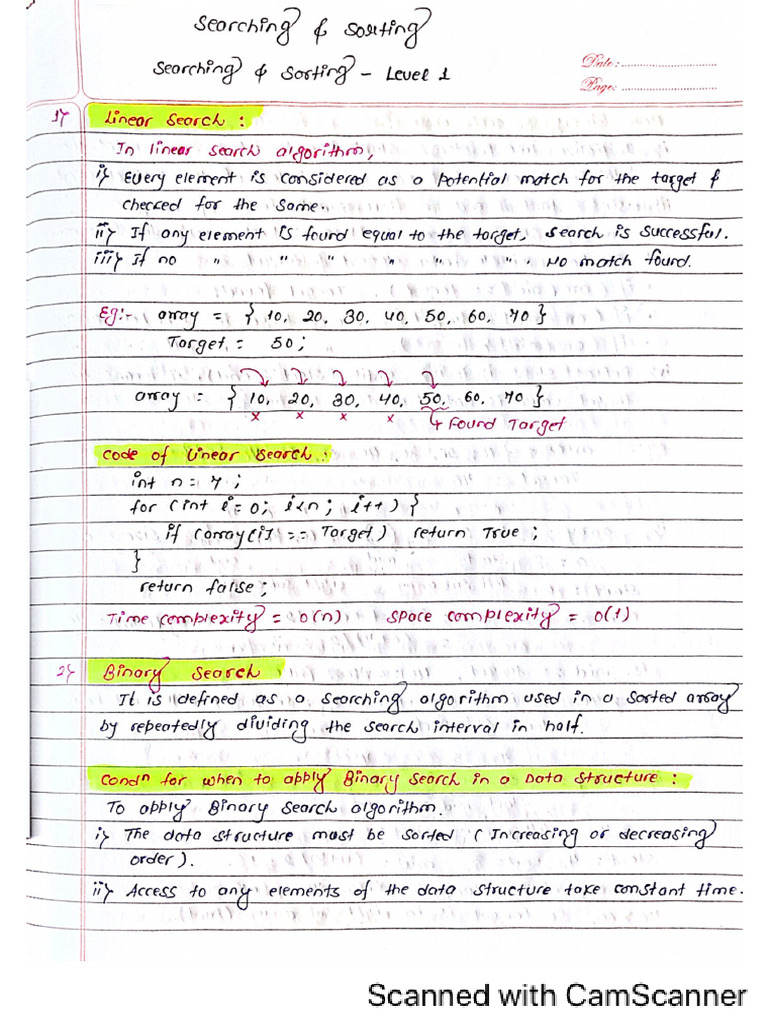 Searching & Sorting
Searching & Sorting - Level 1
Date: ..........................
Page: ..........................
1) Linear Search :
In linear search algorithm,
i) Every element is considered as a potential match for the target &
checked for the same.
ii) If any element is found equal to the target, search is successful.
iii) If no " " " " " " " No match found.
Eg:- array = { 10, 20, 30, 40, 50, 60, 70 }
Target = 50 ;
array = { 10, 20, 30, 40, 50, 60, 70 }
x x x x ↳ Found Target
Code of Linear Search :
int n = 7 ;
for (int i = 0; i<n ; i++) {
if (array[i] == Target) return True ;
}
return false ;
Time complexity = O(n) Space complexity = O(1)
2) Binary Search
It is defined as a searching algorithm used in a sorted array
by repeatedly dividing the search interval in half.
Condn for when to apply Binary Search in a Data Structure :
To apply Binary Search algorithm.
i) The data structure must be sorted ( Increasing or decreasing
order ).
ii) Access to any elements of the data structure take constant time.
Scanned with CamScanner